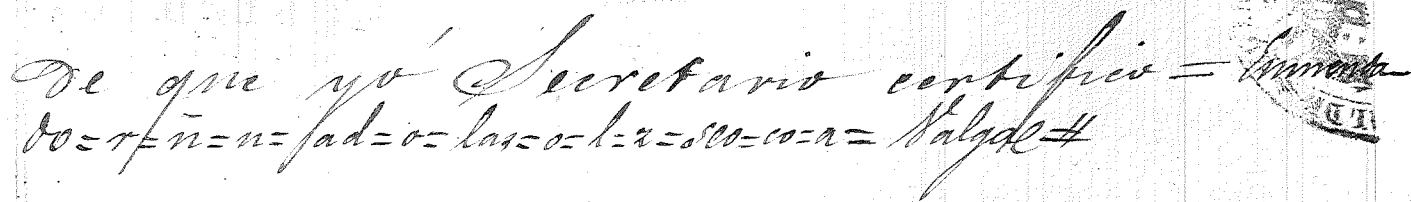 De que yó Secretario certifico = Enmenda-
do = r = ñ = n = sad = o = las = o = l = z = sco = co = a = Valgae #